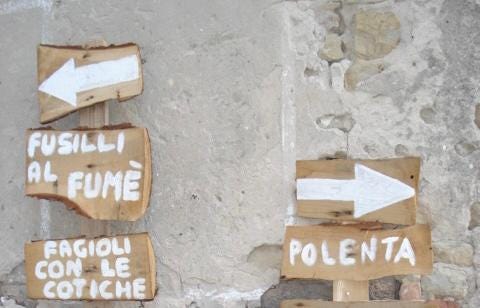 FUSILLI
AL FUMÈ
FAGIOLI
CON LE
COTICHE
POLENTA